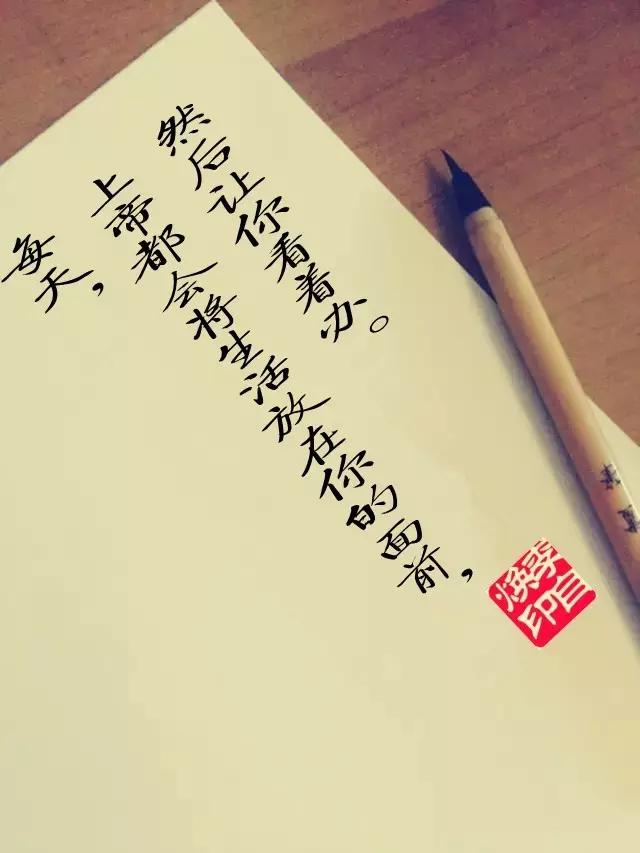 每天，
上帝都会将生活放在你的面前，
然后让你看着办。